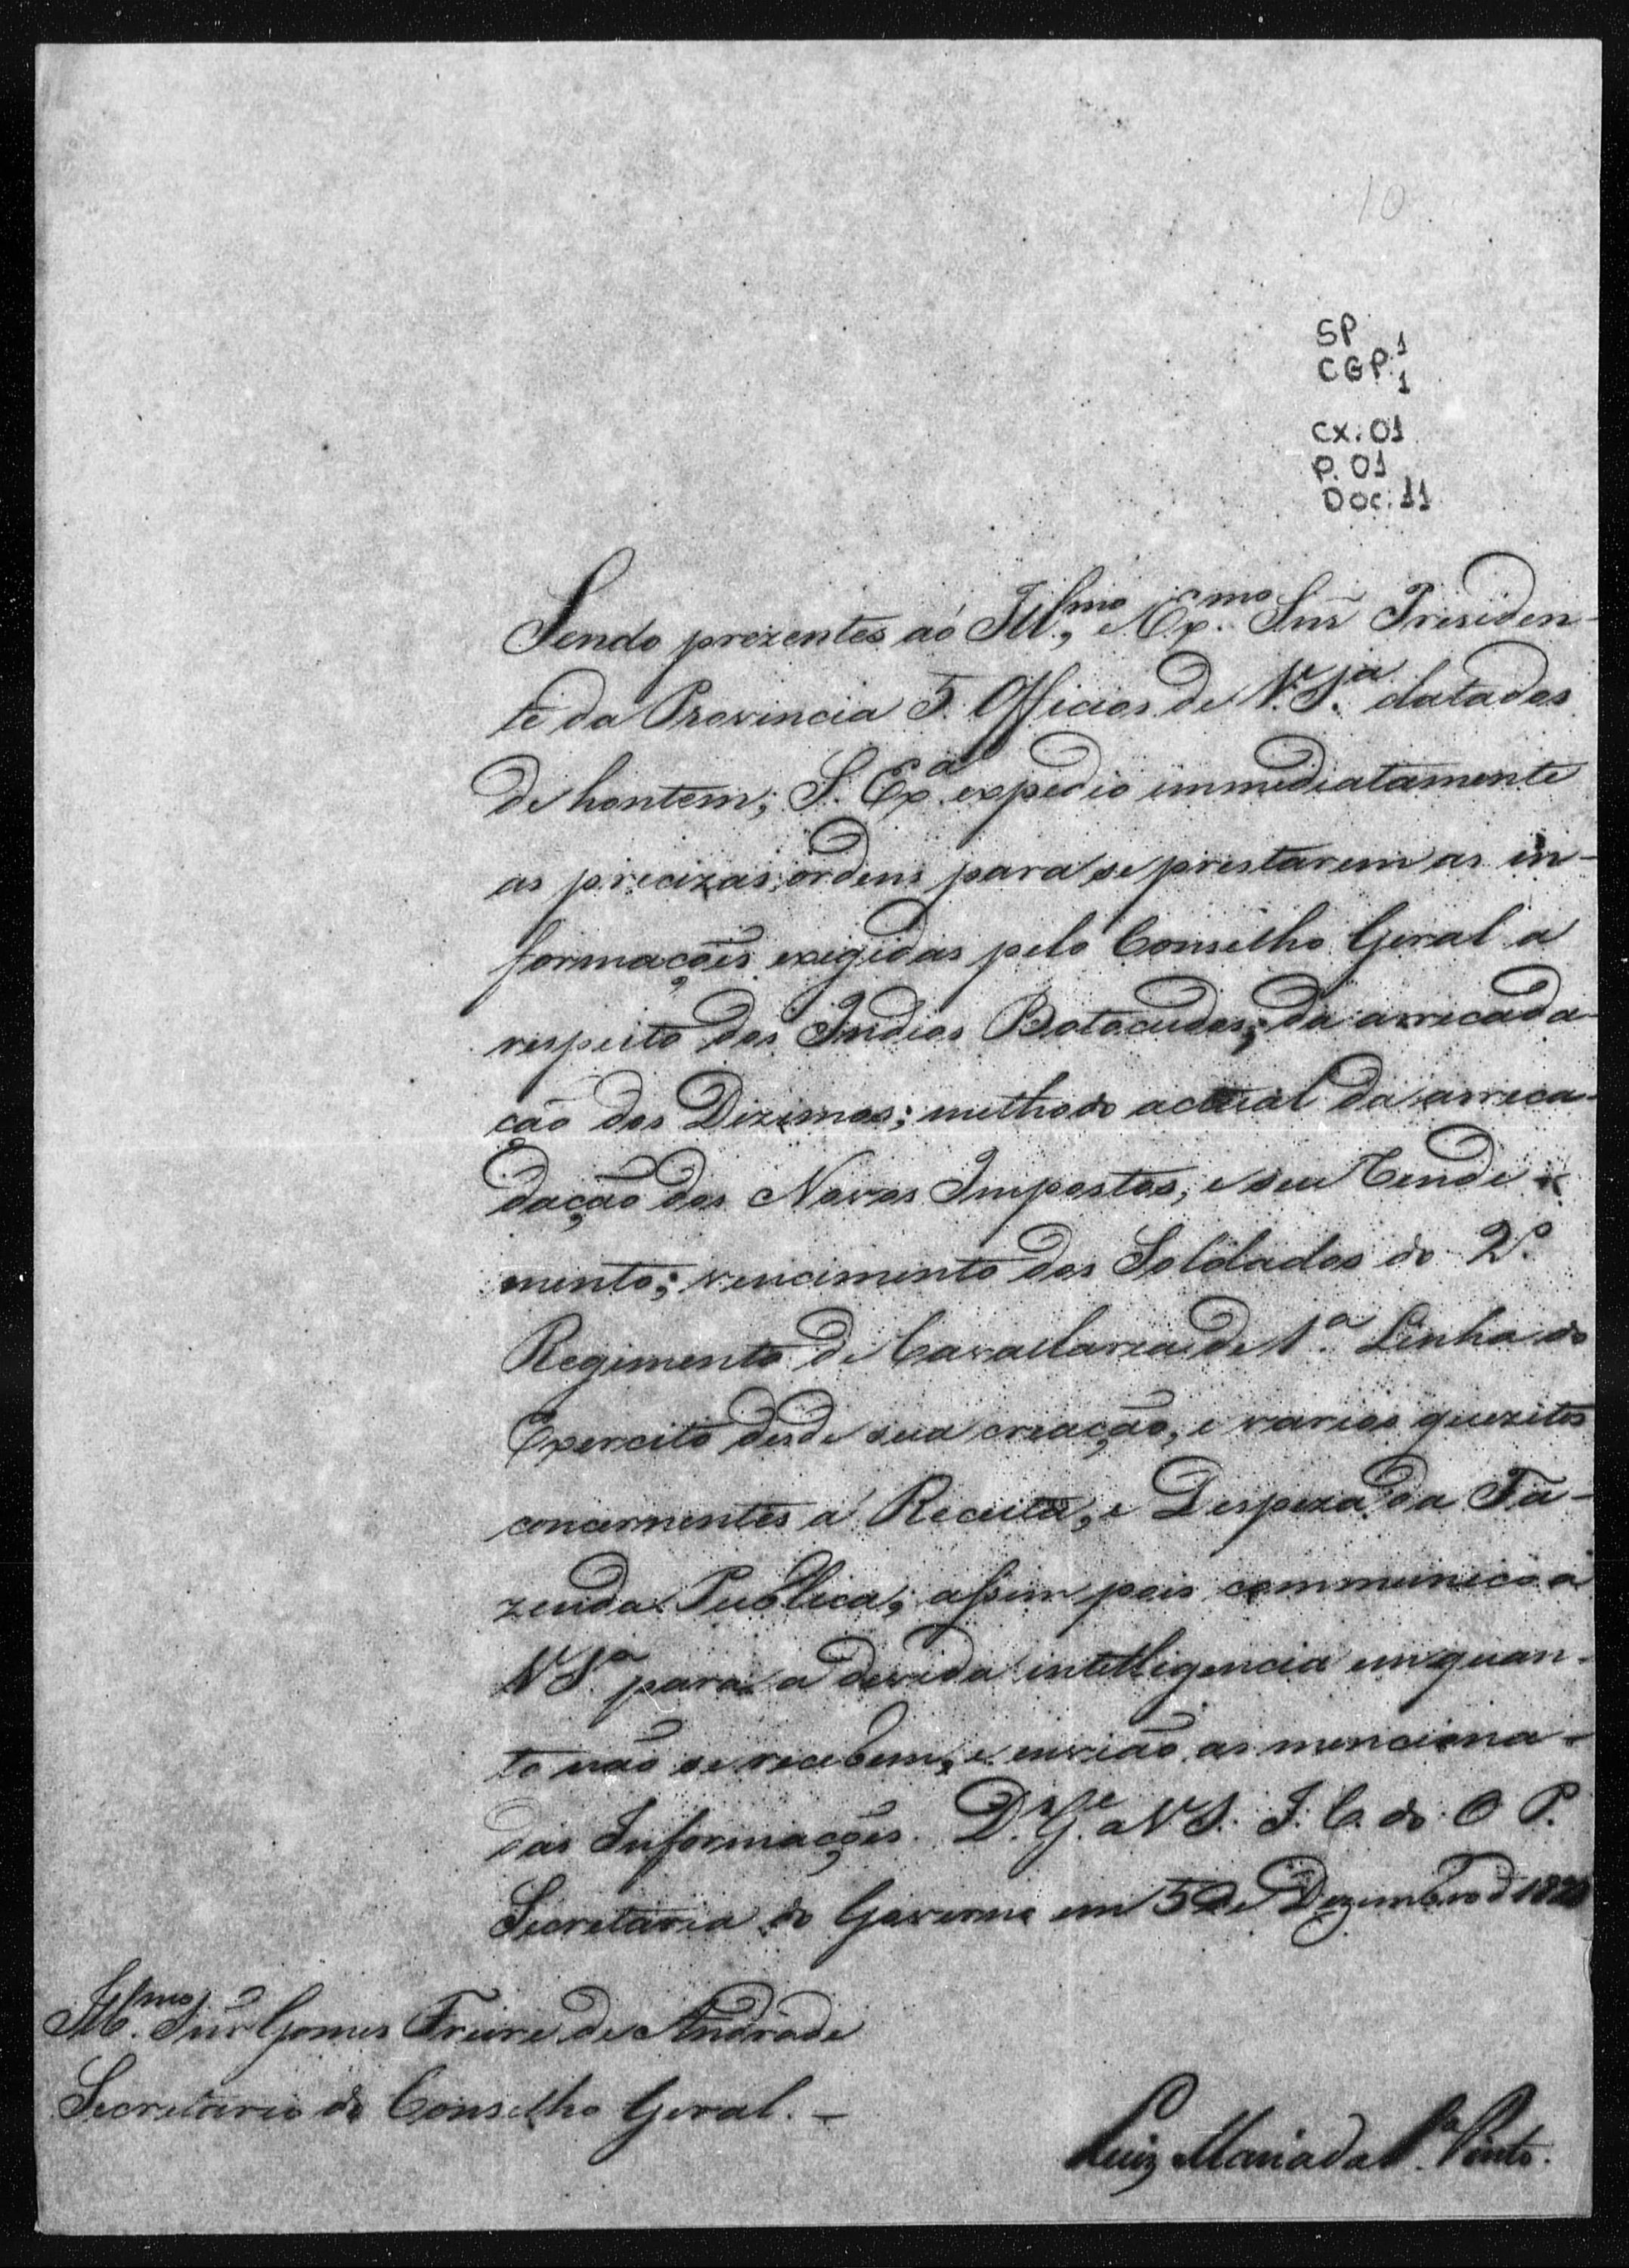 10
SP 1
CGP. 1
CX. 01
P. 01
Doc. 11
Sendo prezentes aó Ill.mo, e Ex.mo Snr̃ Presiden-
te da Provincia 5. Officios de V. S.ª datados
de hontem; S. Ex.ª expedio immediatamente
as precizas ordens para se prestarem as in-
formações exigidas pelo Conselho Geral a
respeito dos Indios Botocudos; da arrecada-
cão dos Dizimos; methodo actual da arreca-
dação dos Novos Impostos, e seu Rende-
mento; vencimento dos Soldados do 2.º
Regimento de Cavallaria de 1.ª Linha do
Exercito desde sua creação, e varios quezitos
concernentes a Receita, e Despeza da Fa-
zenda Publica; assim pois communico a
V S.ª para a devida intelligencia emquan-
to não se recebem, e envião as menciona-
das Informações. D.s G.e a V S. I. C. do O P.
Secretaria do Governo em 5 de Dezembro d
Ill.mo Snr̃ Gomes Freire de Andrade
Secretario do Conselho Geral. -
Luiz Maria da S.ª Pinto.